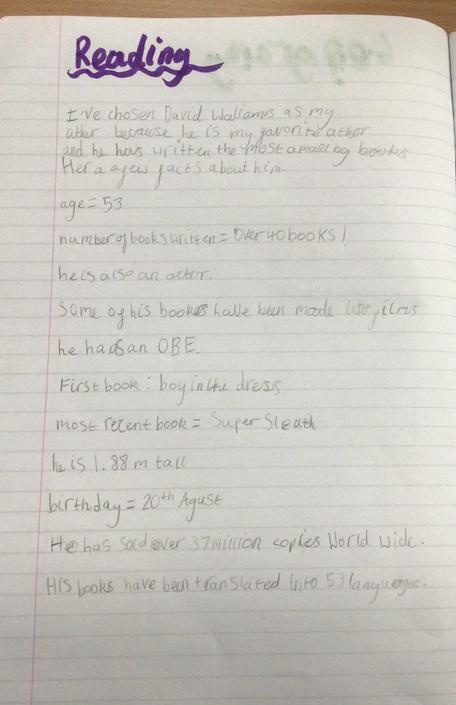 Reading
I've chosen David Waliams as my
other because he is my favorite athor
and he has written the most amazing books
Her a a few facts about him.
age = 53
number of books written = Over 40 books!
he is also an actor.
Some of his books have been made into films
he has an OBE.
First book : boy in the dress
most recent book = Super Sleuth
he is 1.88 m tall
birthday = 20th Agust
He has sold over 37 million copies World wide.
His books have been translated into 53 languages.